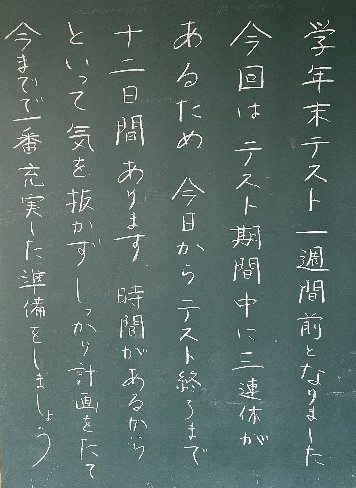 学年末テスト一週間前となりました
今回はテスト期間中に三連休が
あるため 今日からテスト終了まで
十二日間あります 時間があるから
といって気を抜かず しっかり計画をたて
今までで一番充実した準備をしましょう